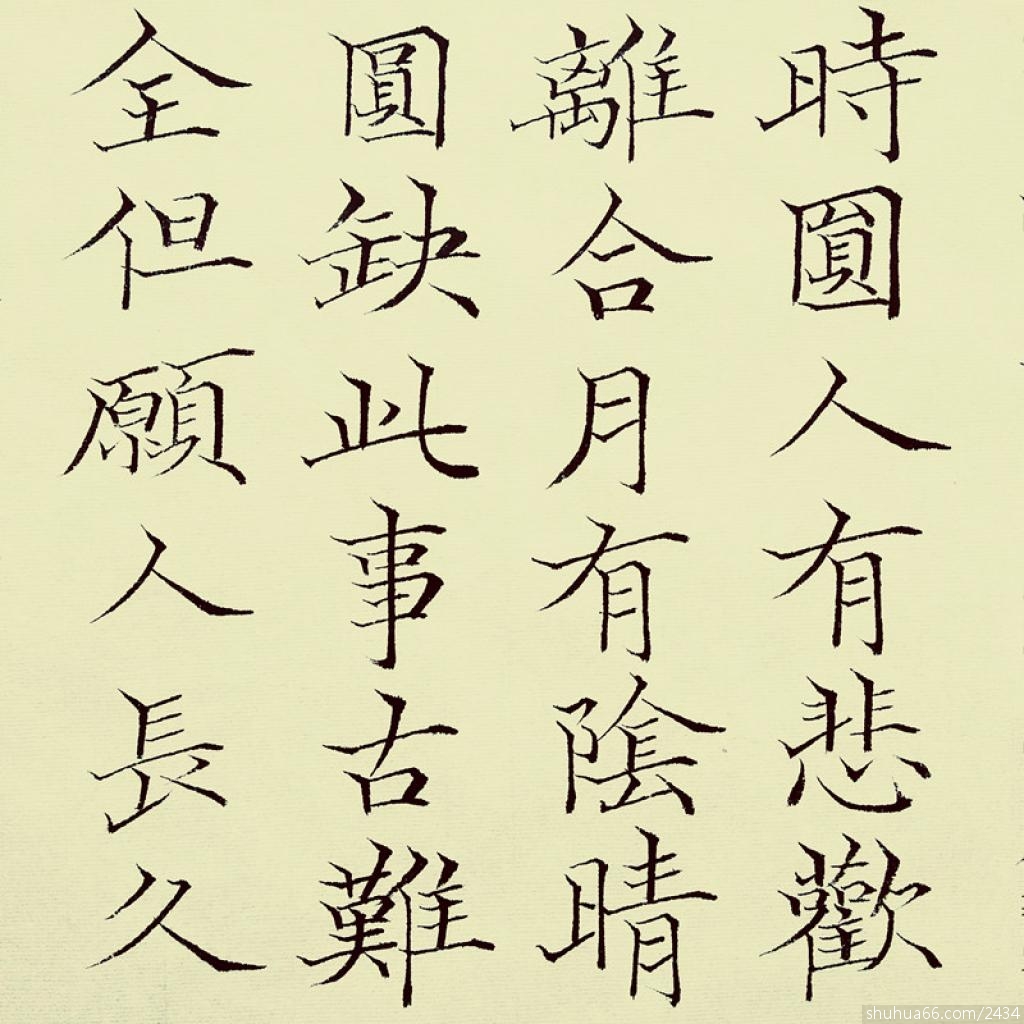 時圓人有悲歡
離合月有陰晴
圓缺此事古難
全但願人長久
shuhua66.com/2434